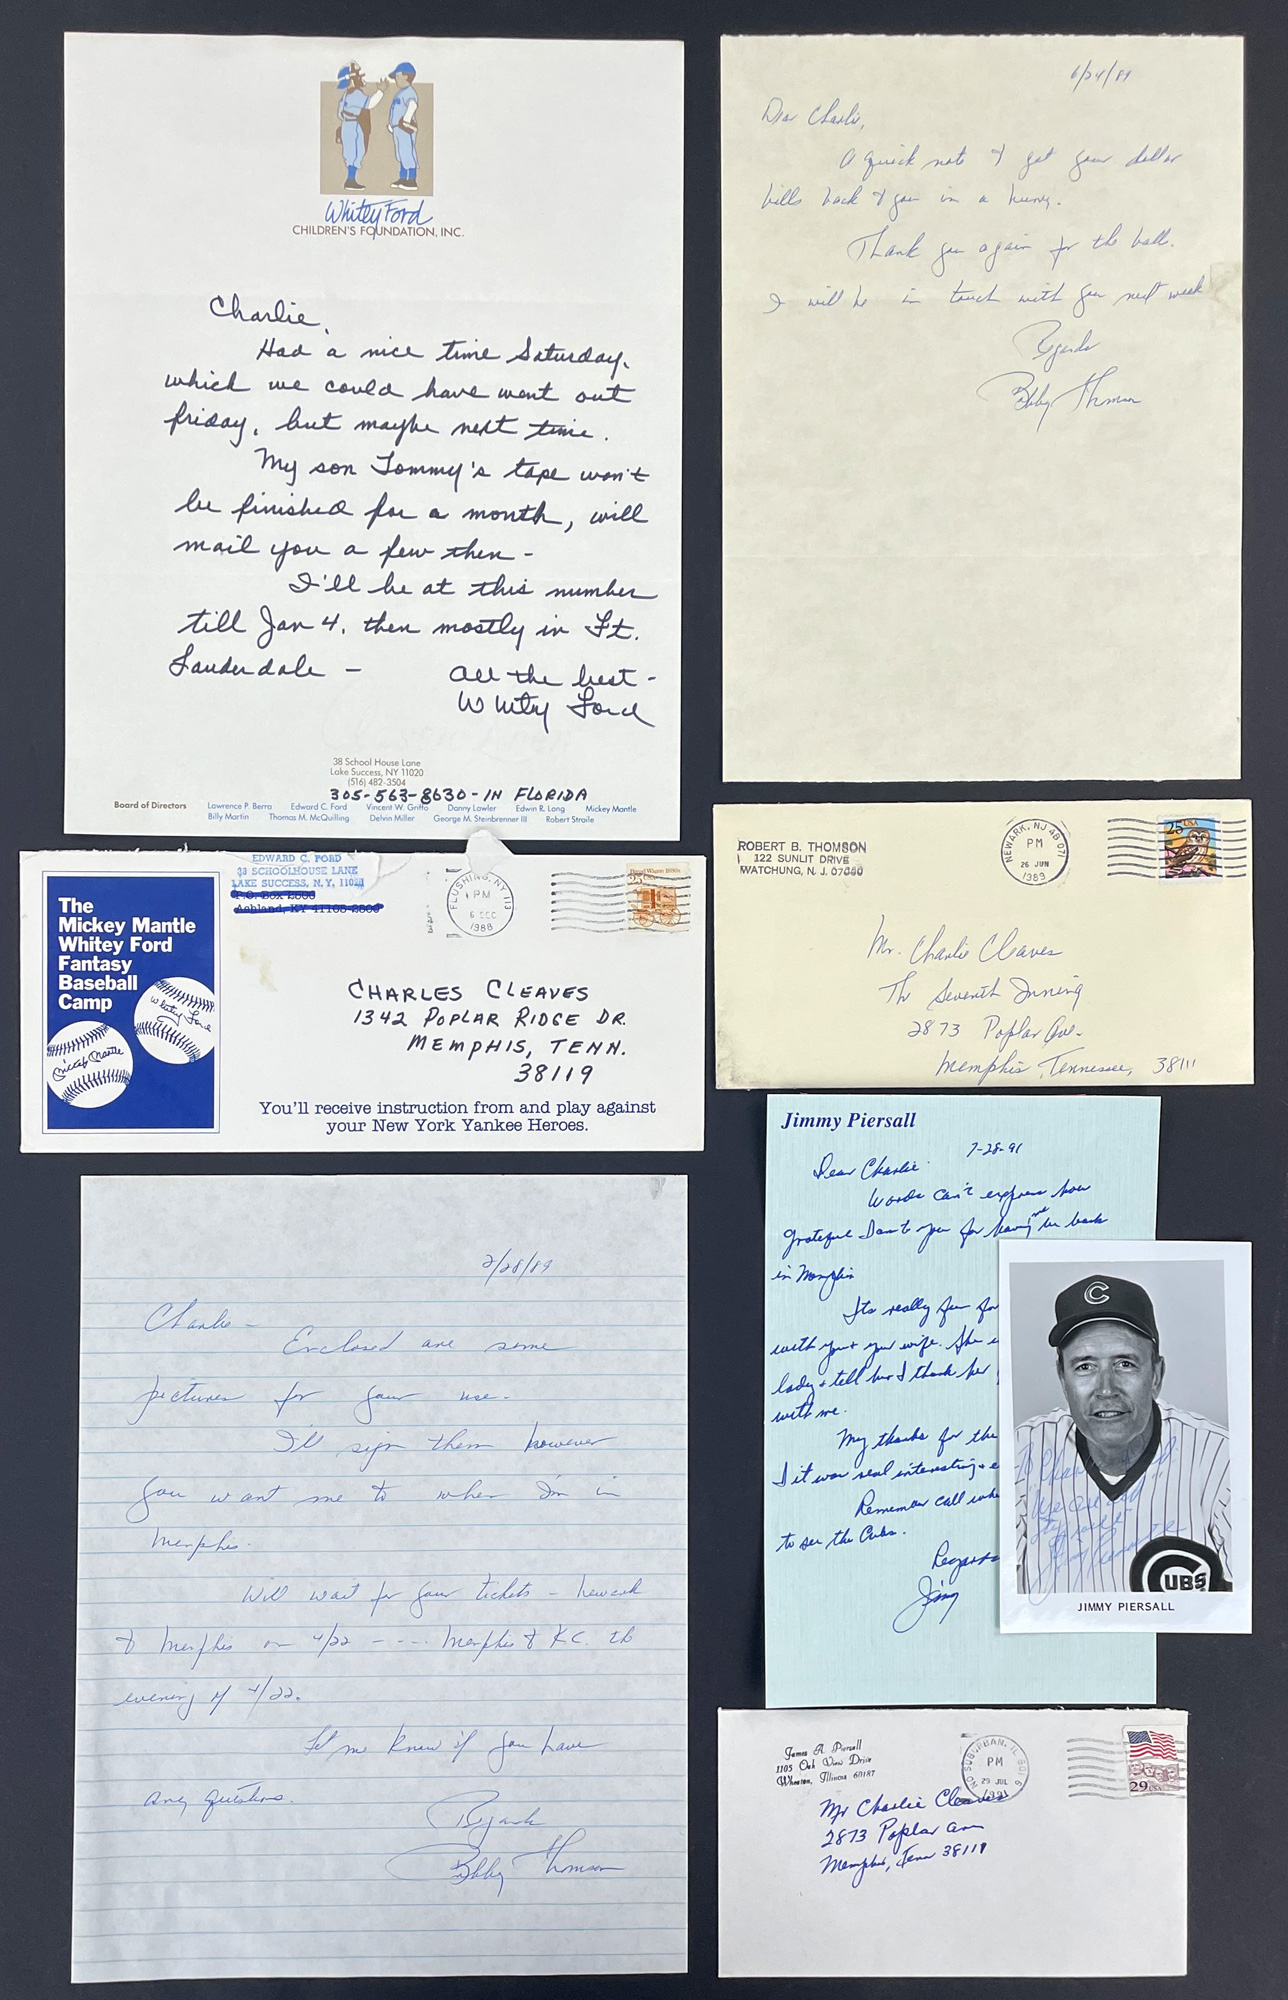 Whitey Ford
CHILDREN'S FOUNDATION, INC.
Charlie,
Had a nice time Saturday,
which we could have went out
friday, but maybe next time.
My son Tommy's tape won't
be finished for a month, will
mail you a few then -
I'll be at this number
till Jan 4, then mostly in Ft.
Lauderdale -
All the best -
Whitey Ford
38 School House Lane
Lake Success, NY 11020
(516) 482-3504
305-563-8630 - IN FLORIDA
Board of Directors Lawrence P. Berra Edward C. Ford Vincent W. Griffo Danny Lawler Edwin R. Long Mickey Mantle
Billy Martin Thomas M. McQuilling Delvin Miller George M. Steinbrenner III Robert Straile
6/24/89
Dear Charlie,
A quick note to get your dollar
bills back to you in a hurry.
Thank you again for the ball.
I will be in touch with you next week
Regards
Bobby Thomson
The
Mickey Mantle
Whitey Ford
Fantasy
Baseball
Camp
Whitey Ford
Mickey Mantle
EDWARD C. FORD
38 SCHOOLHOUSE LANE
LAKE SUCCESS, N.Y. 11020
P.O. Box 2500
Ashland, KY 41105-2500
FLUSHING, NY 113
PM
6 DEC
1988
CHARLES CLEAVES
1342 POPLAR RIDGE DR.
MEMPHIS, TENN.
38119
You'll receive instruction from and play against
your New York Yankee Heroes.
ROBERT B. THOMSON
122 SUNLIT DRIVE
WATCHUNG, N. J. 07060
NEWARK, NJ 071
PM
26 JUN
1989
25 USA
Mr. Charlie Cleaves
The Seventh Inning
2873 Poplar Ave.
Memphis, Tennessee, 38111
Jimmy Piersall
7-28-91
Dear Charlie.
Words can't express how
grateful I am to you for having me be back
in Memphis
Its really fun for
with you + your wife. She
lady + tell her I thank her
with me.
My thanks for the
I it was real interesting + e
Remember call whe
to see the Cubs.
Regards
Jim
C
UBS
JIMMY PIERSALL
2/28/89
Charlie -
Enclosed are some
pictures for your use.
I'll sign them however
you want me to when I'm in
Memphis.
Will wait for your tickets - Newark
to Memphis on 4/22 ---- Memphis to K.C. the
evening of 4/22.
Let me know if you have
any questions.
Regards
Bobby Thomson
James A. Piersall
1105 Oak View Drive
Wheaton, Illinois 60187
PM
29 JUL
1991
29 USA
Mr Charlie Cleaves
2873 Poplar Ave
Memphis, Tenn 38119